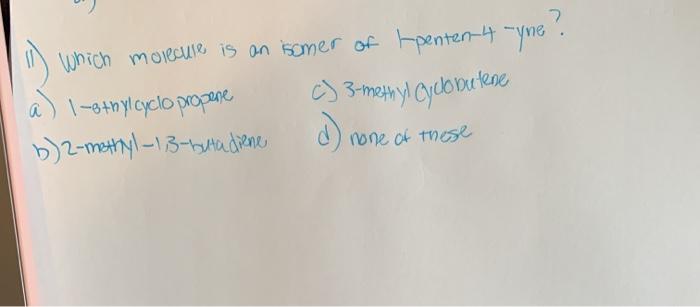 11) Which molecule is an isomer of 1-penten-4-yne?
a) 1-ethylcyclopropene
c) 3-methylcyclobutene
b) 2-methyl-1,3-butadiene
d) none of these